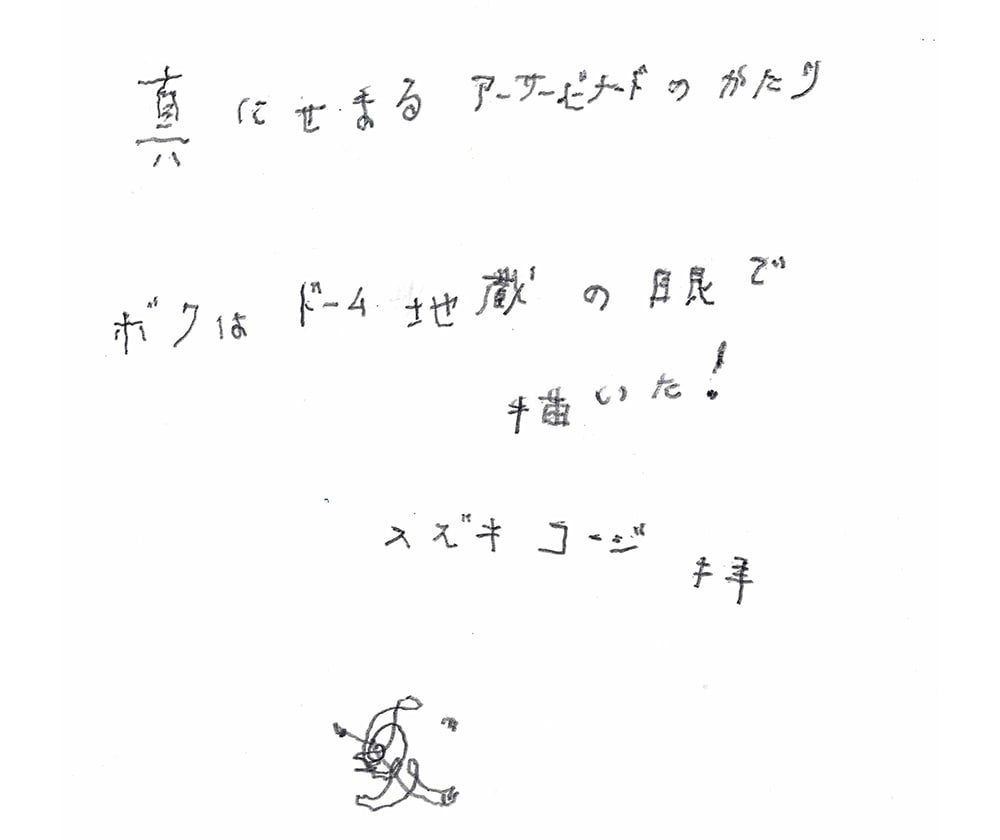 真にせまるアーサービナードのがたり
ボクはドーム地蔵の目で
描いた!
スズキコージ 拝